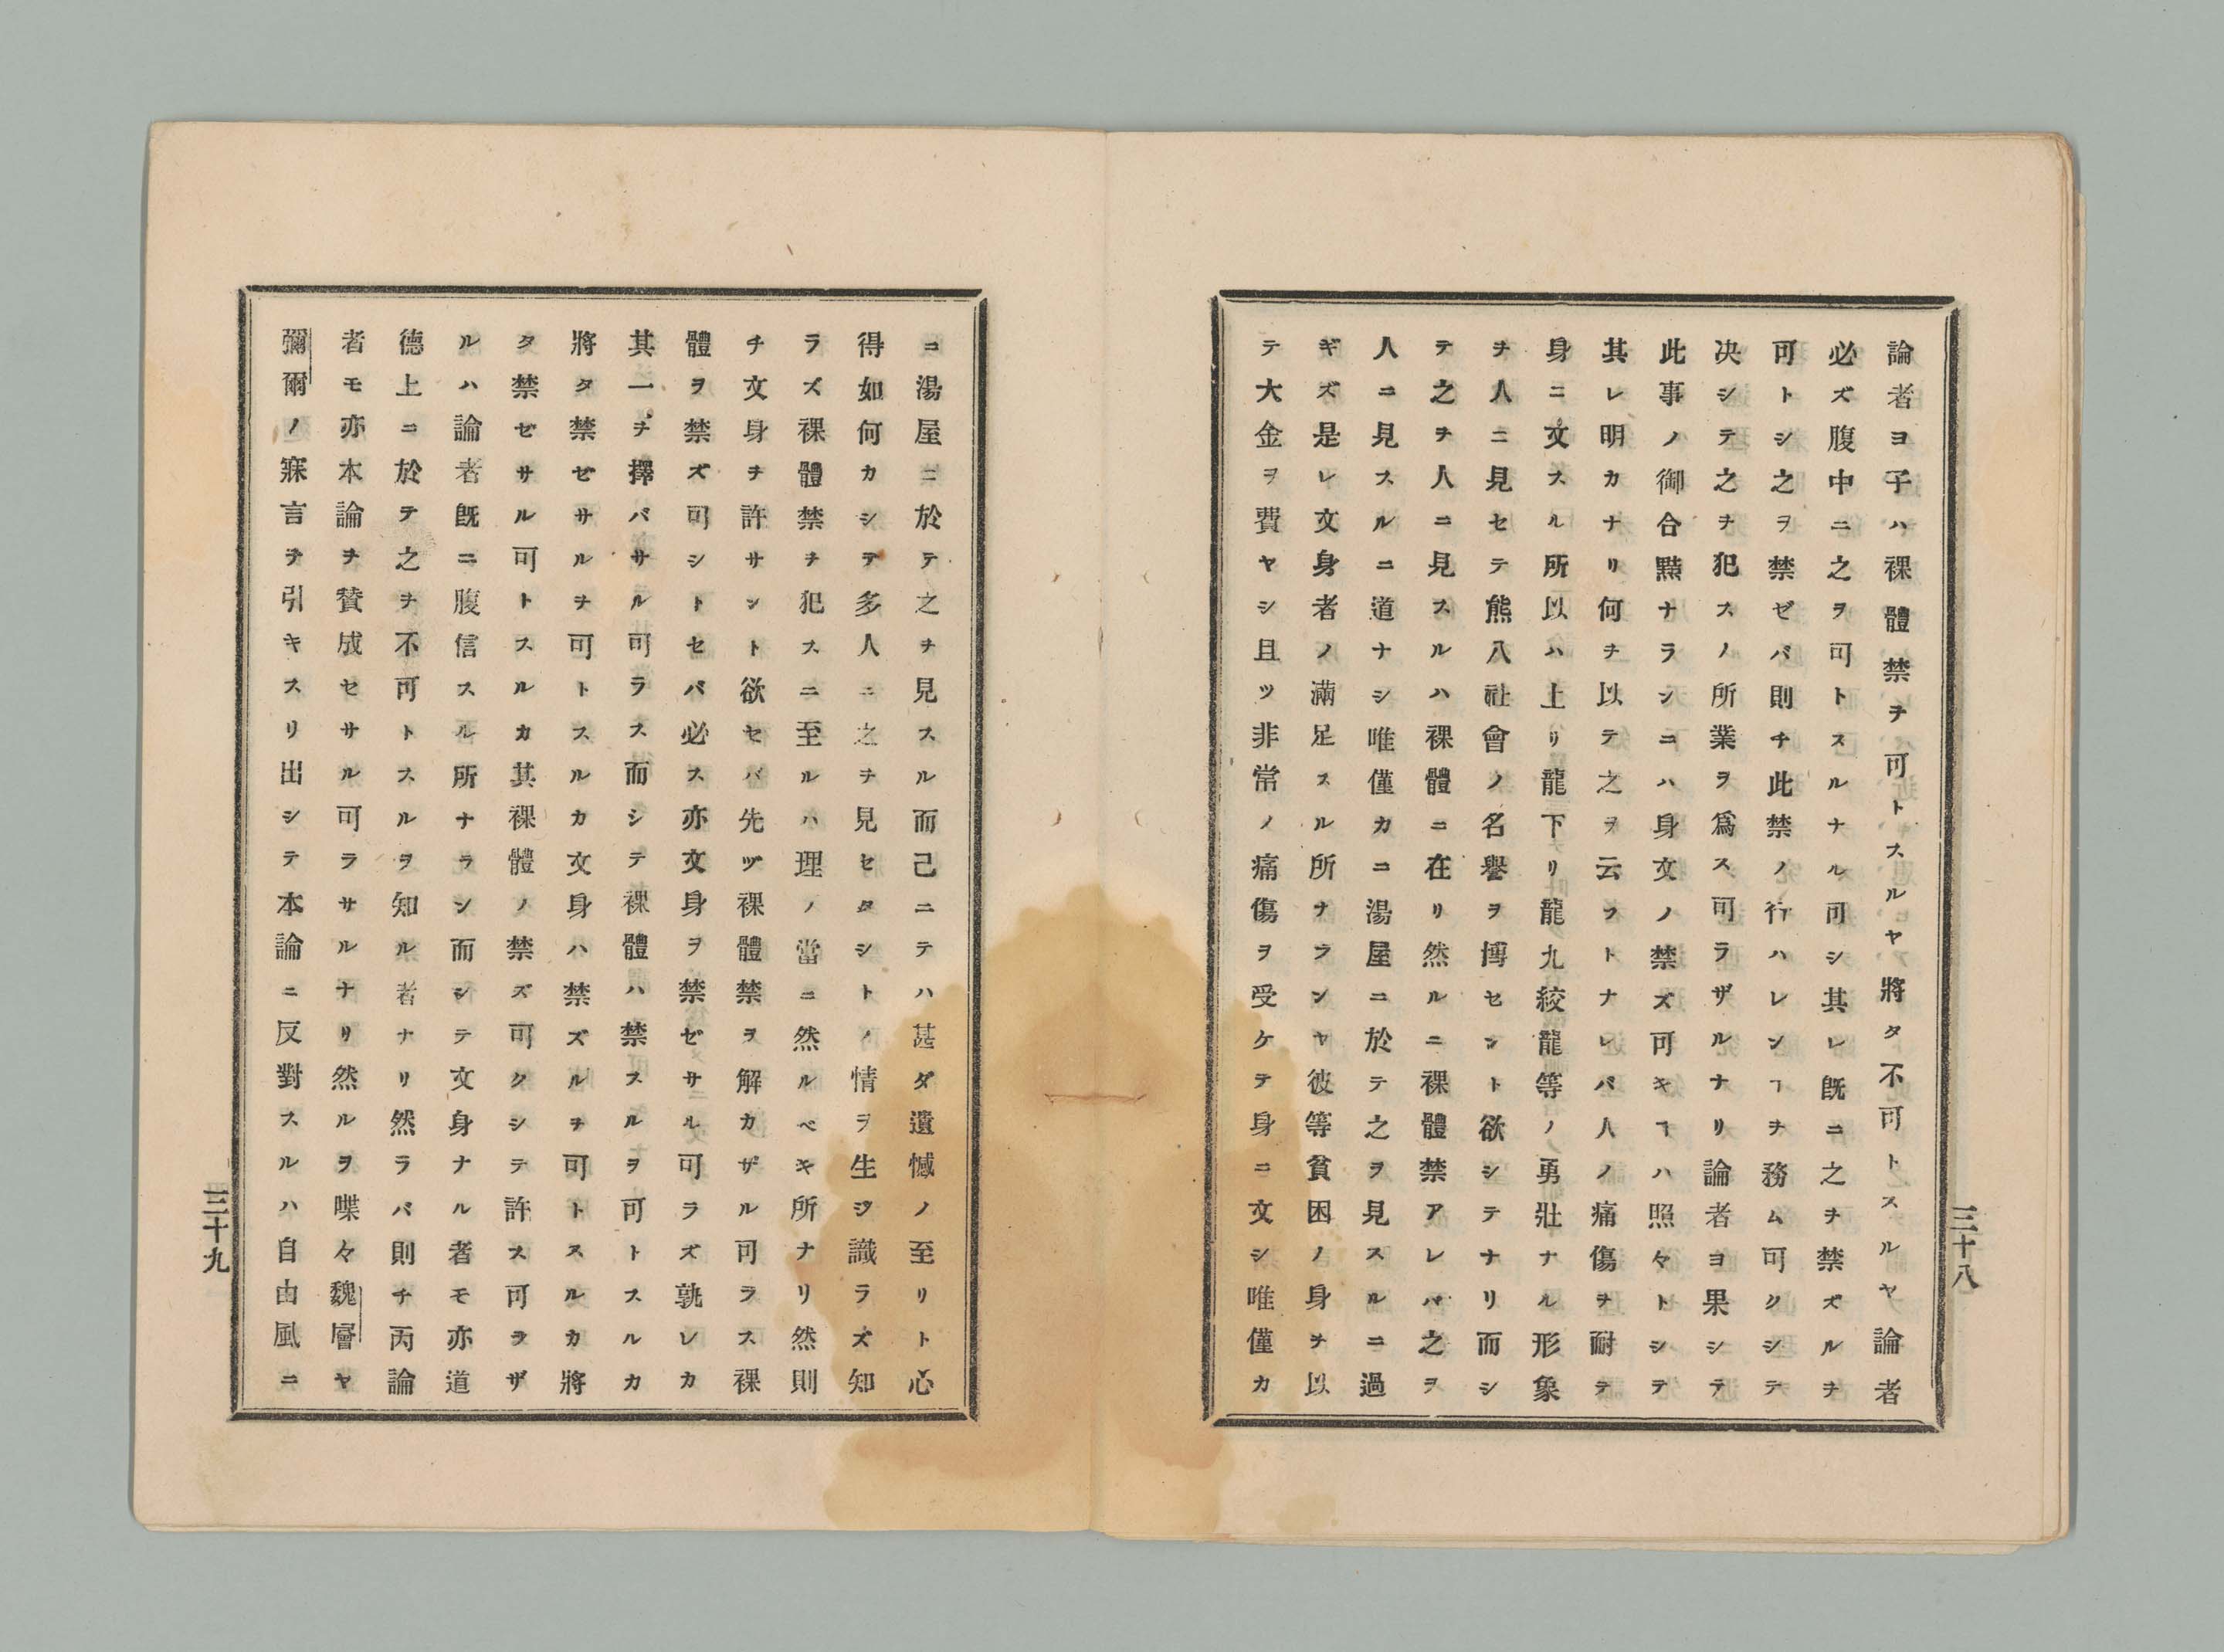 論者ヨ子ハ裸體禁ヲ可トスルヤ將タ不可トスルヤ論者
必ズ腹中ニ之ヲ可トスルナル可シ其レ既ニ之ヲ禁ズルヲ
可トシ之ヲ禁ゼバ則チ此禁ノ行ハレンヿヲ務ム可クシテ
决シテ之ヲ犯スノ所業ヲ爲ス可ラザルナリ論者ヨ果シテ
此事ノ御合點ナランニハ身文ノ禁ズ可キヿハ照々トシテ
其レ明カナリ何ヲ以テ之ヲ云フトナレバ人ノ痛傷ヲ耐テ
身ニ文スル所以ハ上リ龍下リ龍九絞龍等ノ勇壯ナル形象
ヲ人ニ見セテ熊八社會ノ名譽ヲ博セント欲シテナリ而シ
テ之ヲ人ニ見スルハ裸體ニ在リ然ルニ裸體禁アレバ之ヲ
人ニ見スルニ道ナシ唯僅カニ湯屋ニ於テ之ヲ見スルニ過
ギズ是レ文身者ノ滿足スル所ナランヤ彼等貧困ノ身ヲ以
テ大金ヲ費ヤシ且ツ非常ノ痛傷ヲ受ケテ身ニ文シ唯僅カ
三十八
ニ湯屋ニ於テ之ヲ見スル而己ニテハ甚ダ遺憾ノ至リト心
得如何カシテ多人ニ之ヲ見セタシトノ情ヲ生ジ識ラズ知
ラズ裸體禁ヲ犯スニ至ルハ理ノ當ニ然ルベキ所ナリ然則
チ文身ヲ許サント欲セバ先ヅ裸體禁ヲ解カザル可ラス裸
體ヲ禁ズ可シトセバ必ス亦文身ヲ禁ゼサル可ラズ孰レカ
其一ヲ擇バサル可ラス而シテ裸體ハ禁スルヲ可トスルカ
將タ禁ゼサルヲ可トスルカ文身ハ禁ズルヲ可トスルカ將
タ禁ゼサル可トスルカ其裸體ノ禁ズ可クシテ許ス可ラザ
ルハ論者既ニ腹信スル所ナラン而シテ文身ナル者モ亦道
德上ニ於テ之ヲ不可トスルヲ知ル者ナリ然ラバ則チ丙論
者モ亦本論ヲ賛成セサル可ラサルナリ然ルヲ喋々魏層ヤ
彌爾ノ寐言ヲ引キスリ出シテ本論ニ反對スルハ自由風ニ
三十九